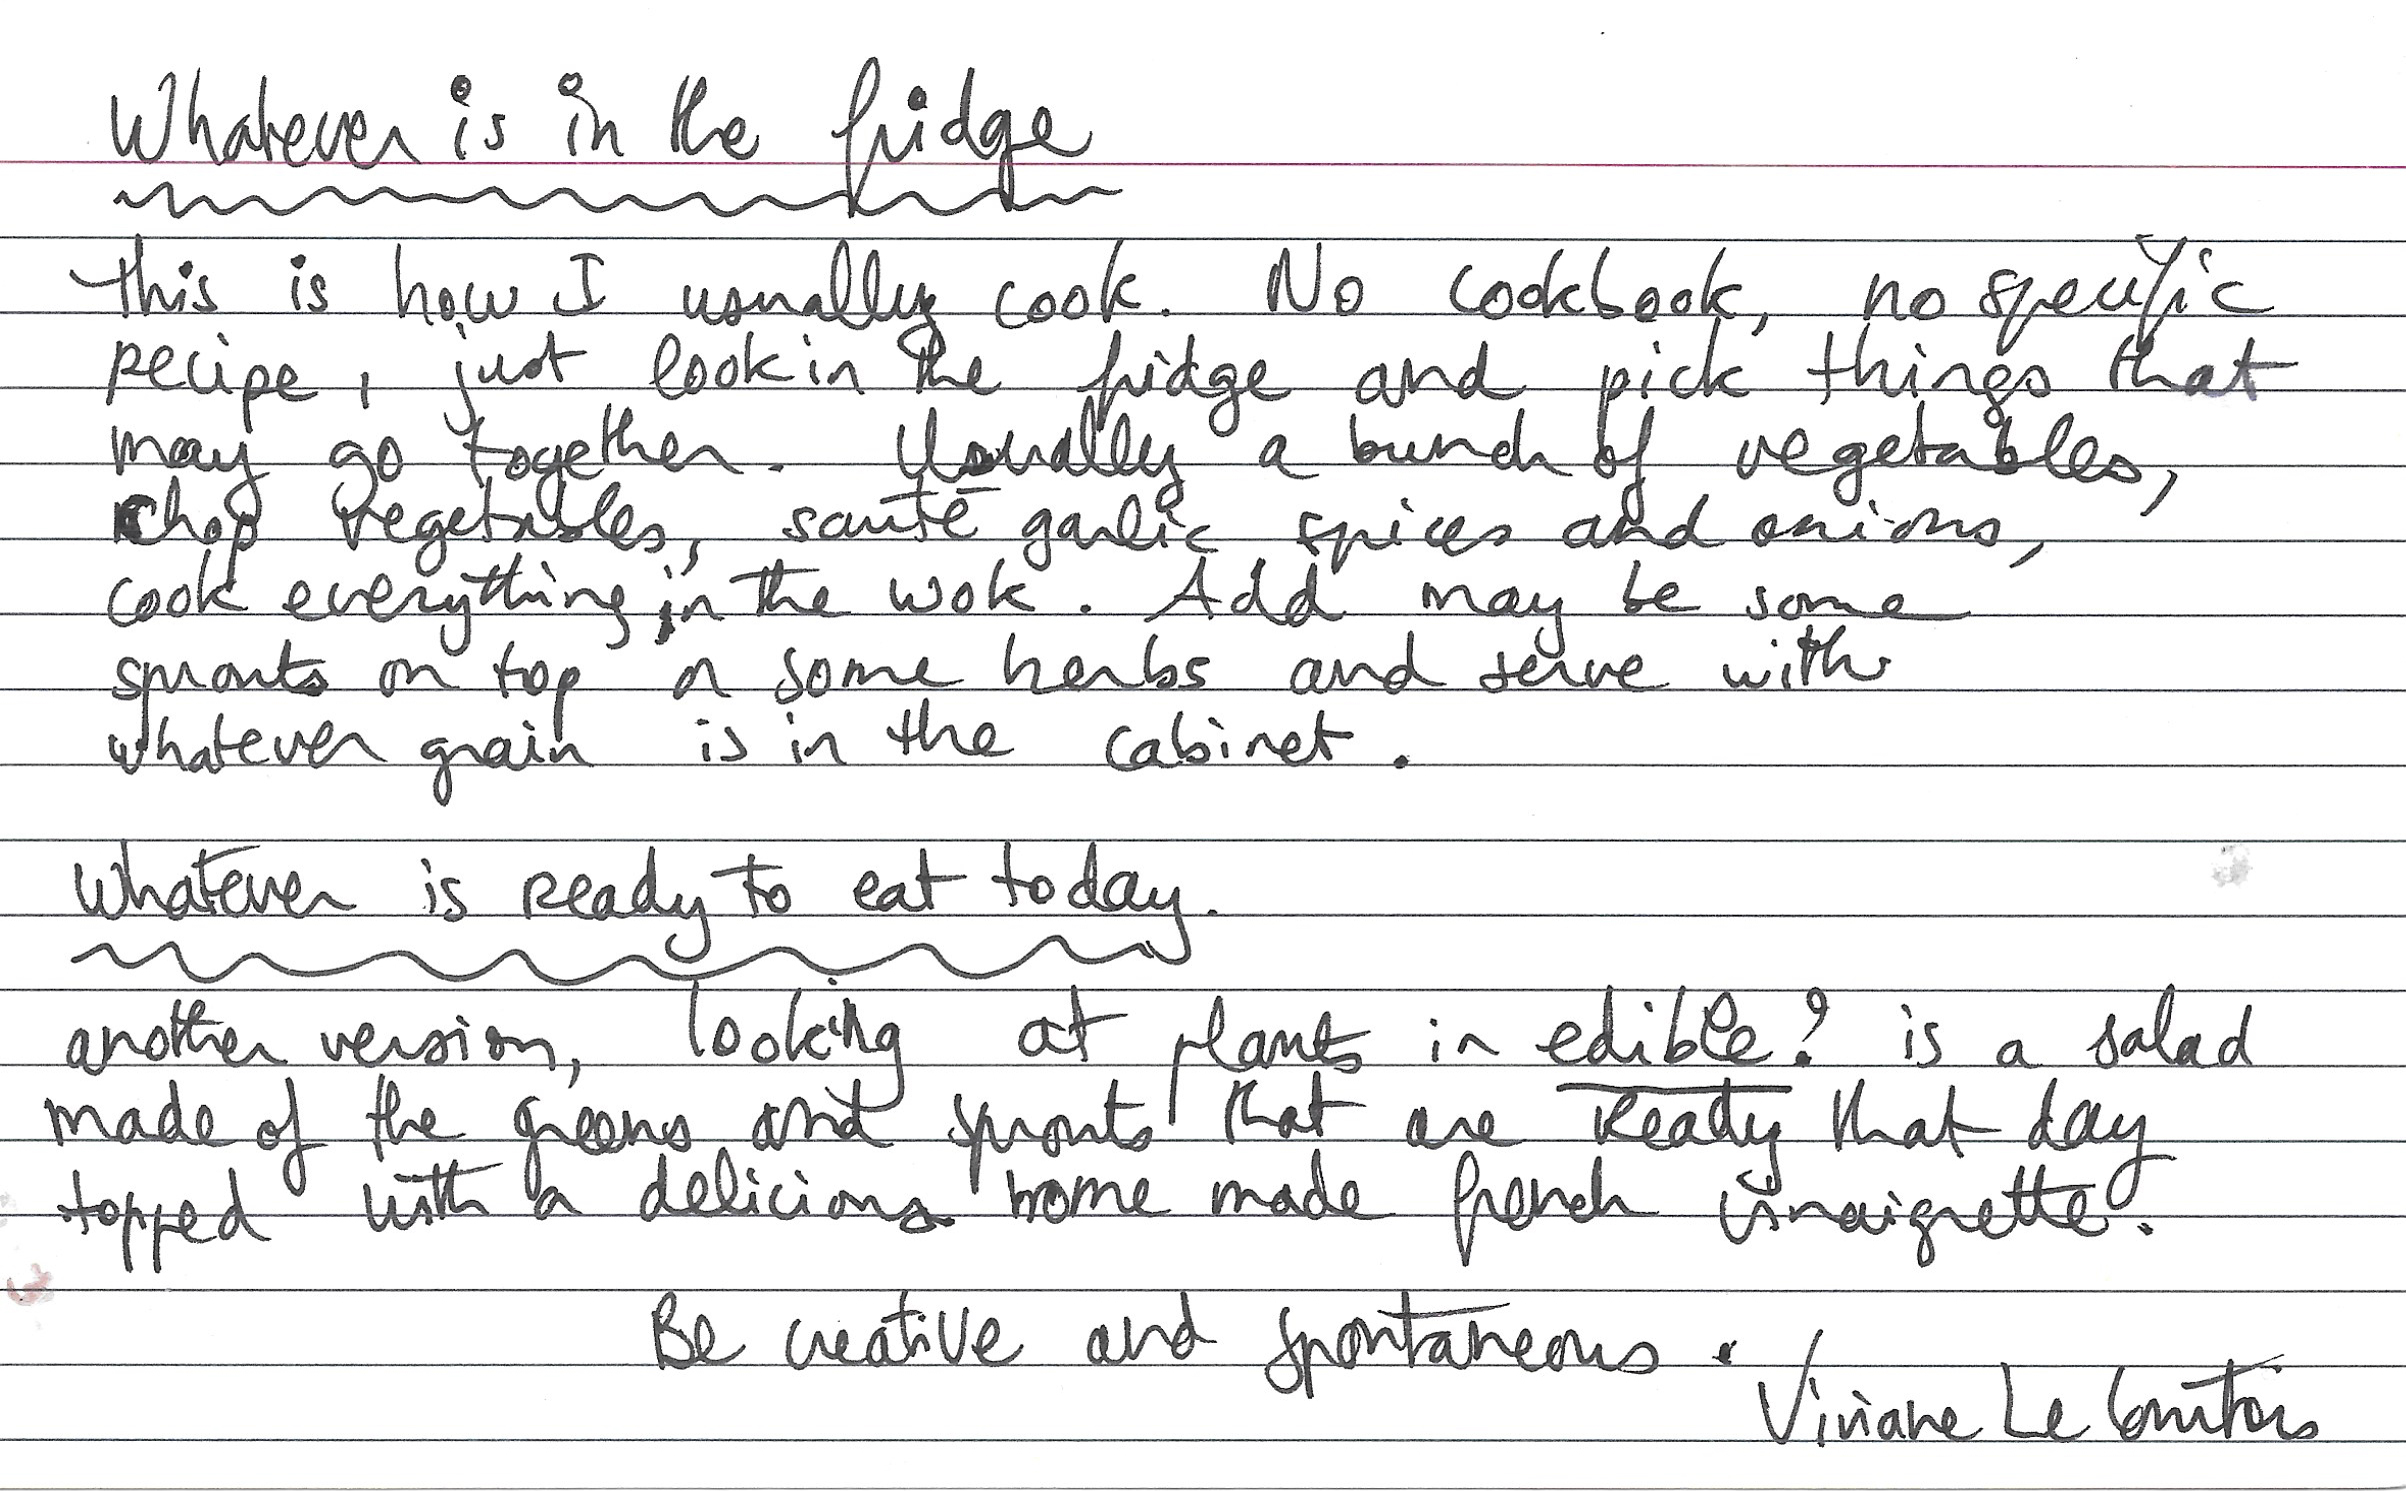 Whatever is in the fridge
This is how I usually cook. No cookbook, no specific
recipe, just look in the fridge and pick things that
may go together. Usually a bunch of vegetables,
chop vegetables, sauté garlic spices and onions,
cook everything in the wok. Add may be some
sprouts on top or some herbs and serve with
whatever grain is in the cabinet.
Whatever is ready to eat today.
another version, looking at plants in edible? is a salad
made of the greens and sprouts that are ready that day
topped with a delicious home made french vinaigrette.
Be creative and spontaneous.
Viviane Le Courtois